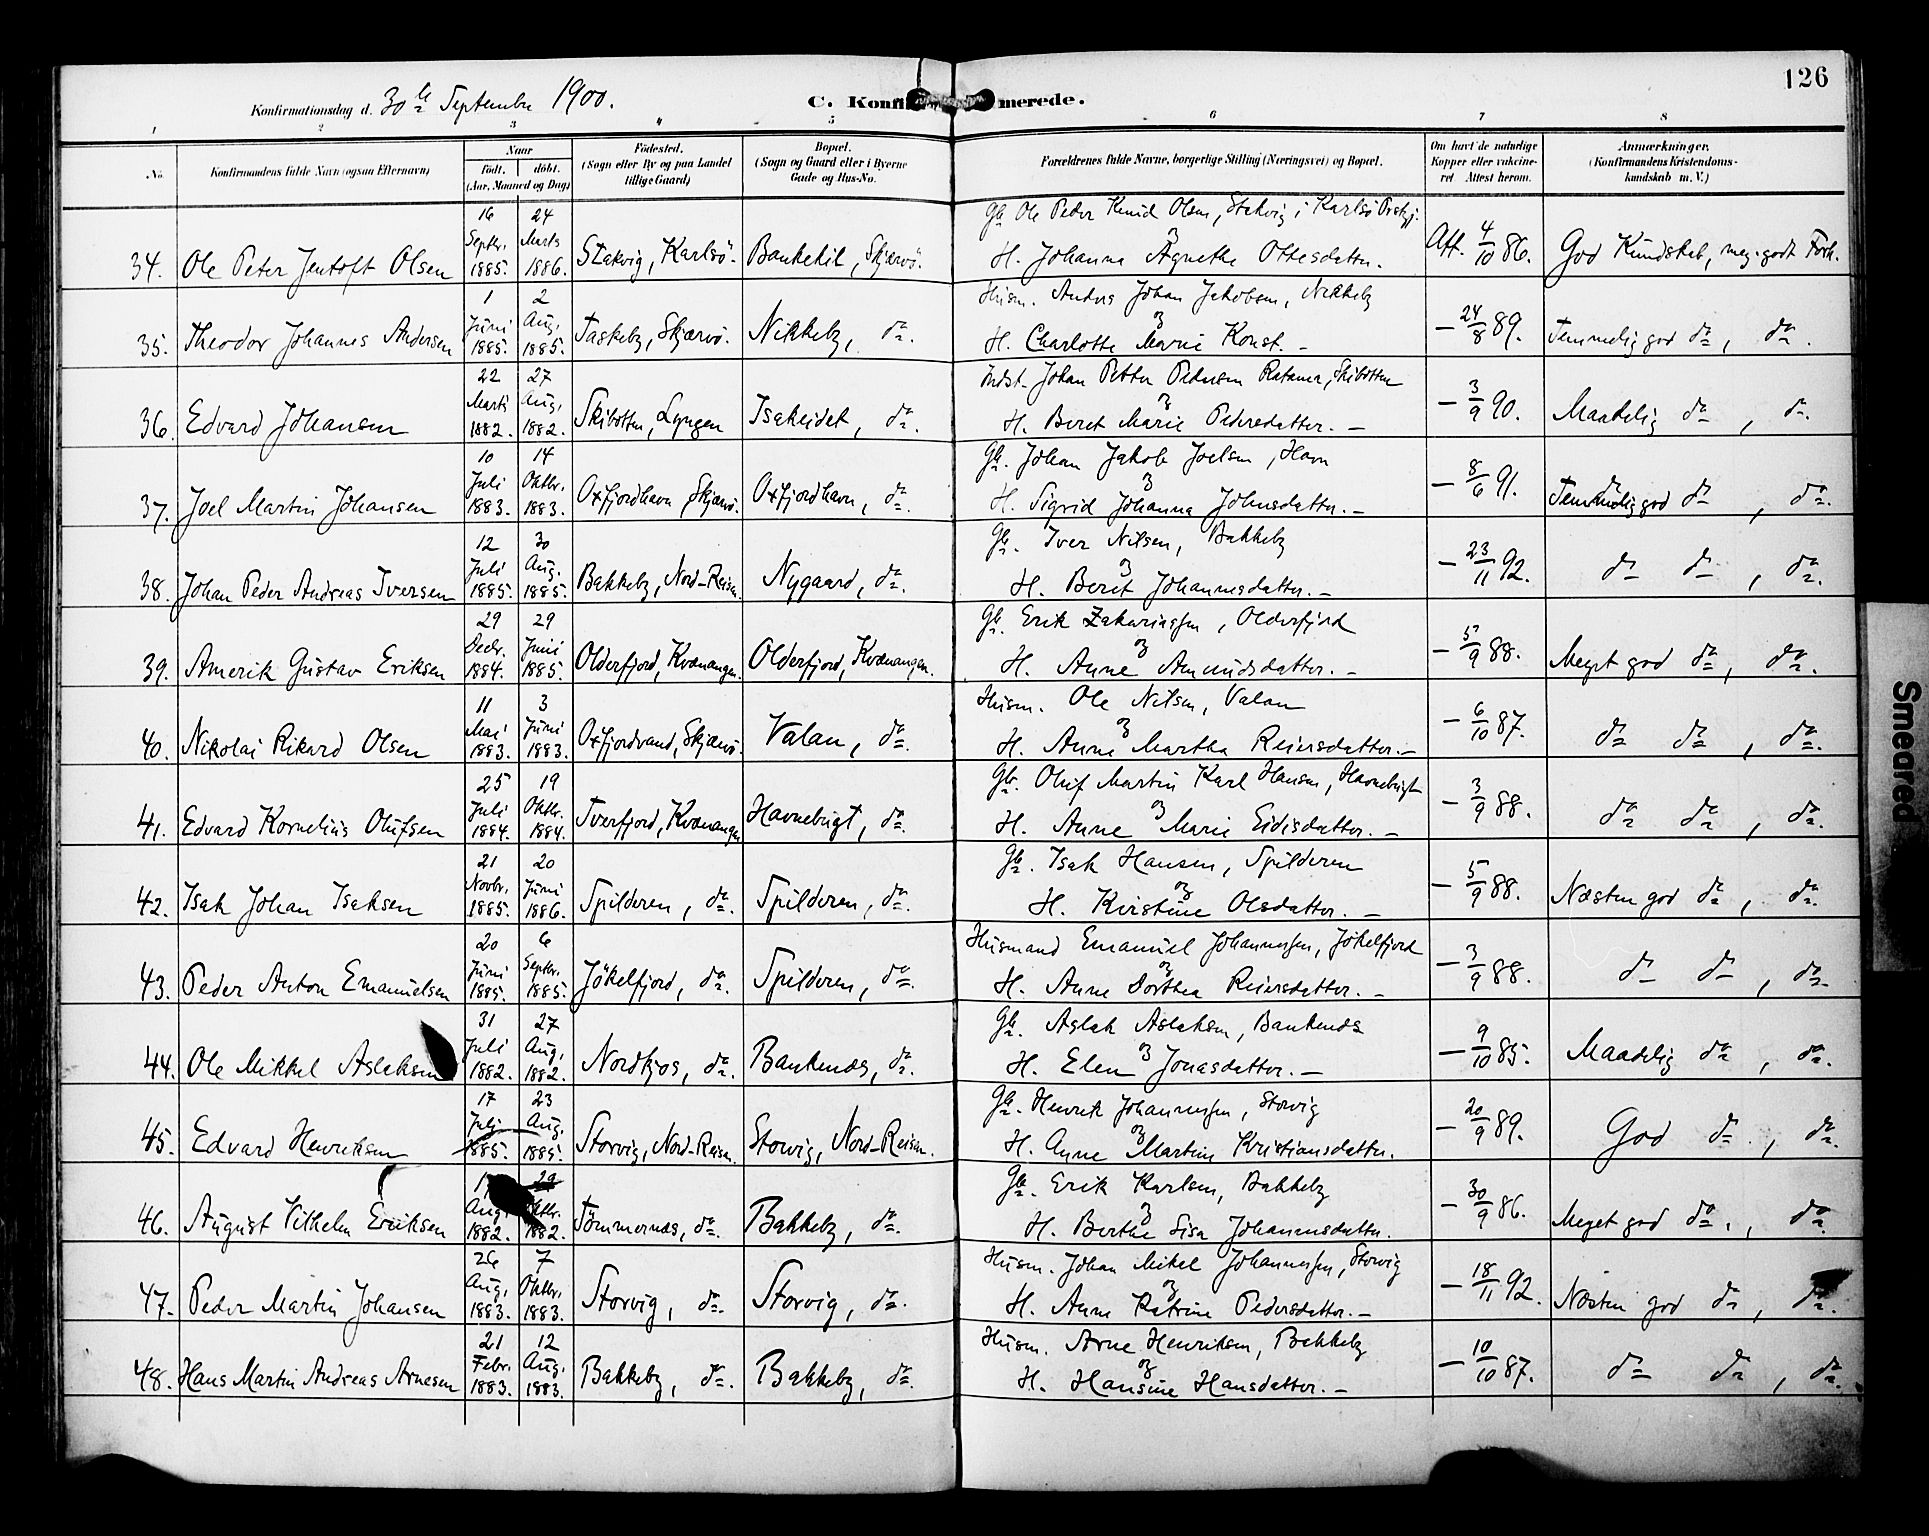 126
Konfirmationsdag d. 30te September 1900.
C. Konfirmerede.
1 2 3 4 5 6 7 8
No. Konfirmandens fulde Navn (ogsaa Efternavn) Naar Födt. döbt. (Aar, Maaned og Dag) Födested. (Sogn eller By og paa Landet tillige Gaard) Bopæl. (Sogn og Gaard eller i Byerne Gade og Hus-No. Forældrenes fulde Navne, borgerlige Stilling (Næringsvei) og Bopæl. Om havt de naturlige Kopper eller vakcineret Attest herom. Anmærkninger. (Konfirmandens Kristendomskundskab m. V.)
34. Ole Peter Jentoft Olsen 16 Septbr. 1885. 24 Marts 1886. Stakvig, Karlsö. Bankekil, Skjærvö. Gb. Ole Peder Knud Olsen, Stakvig i Karlsö Prstgj. og H. Johanna Agnethe Ottesdatter. Att. 4/10 86. God Kundskab, meg. godt Forh.
35. Theodor Johannes Andersen 1 Juni 1885. 2 Aug. 1885. Taskeby, Skjærvö. Nikkeby, do. Husm. Anders Johan Jakobsen, Nikkeby og H. Charlotte Marie Konst. – – 24/8 89. Temmelig god do, do.
36. Edvard Johansen 22 Marts 1882. 27 Aug. 1882. Skibotten, Lyngen Isakeidet, do. Indst. Johan Petter Pedersen Ratama, Skibotten og H. Beret Marie Pedersdatter. – – 3/9 90. Maadelig do, do.
37. Joel Martin Johansen 10 Juli 1883. 14 Oktbr. 1883. Oxfjordhavn, Skjærvö. Oxfjordhavn, do. Gb. Johan Jakob Joelsen, Havn og H. Sigrid Johanna Johnsdatter. – – 8/6 91. Temmelig god do, do.
38. Johan Peder Andreas Iversen 12 Juli 1885. 30 Aug. 1885. Bakkeby, Nord-Reisen. Nygaard, do. Gb. Iver Nilsen, Bakkeby og H. Beret Johannesdatter. – – 23/11 92. do do, do.
39. Amerik Gustav Eriksen 29 Decbr. 1884. 29 Juni 1885. Olderfjord, Kvænangen. Olderfjord, Kvænangen. Gb. Erik Zakariassen, Olderfjord og H. Anne Amundsdatter. – – 5/9 88. Meget god do, do.
40. Nikolai Rikard Olsen 11 Mai 1883. 3 Juni 1883. Oxfjordvand, Skjærvö. Valan, do. Husm. Ole Nilsen, Valan og H. Anne Martha Reiersdatter. – – 6/10 87. do do, do.
41. Edvard Kornelius Olufsen 25 Juli 1884. 19 Oktbr. 1884. Tverfjord, Kvænangen Havnebugt, do. Gbr. Oluf Martin Karl Hansen, Havnebugt og H. Anne Marie Eidisdatter. – – 3/9 88. do do, do.
42. Isak Johan Isaksen 21 Novbr. 1885. 20 Juni 1886. Spilderen, do. Spilderen, do. Gb. Isak Hansen, Spilderen og H. Kirstine Olsdatter. – – 5/9 88. Næsten god do, do.
43. Peder Anton Emanuelsen 20 Juni 1885. 6 Septbr. 1885. Jökelfjord, do. Spilderen, do. Husmand Emanuel Johannessen, Jökelfjord og H. Anne Dorthea Reiersdatter. – – 3/9 88. do do, do.
44. Ole Mikkel Aslaksen 31 Juli 1882. 27 Aug. 1882. Nordkjos, do. Bankenes, do. Gb. Aslak Aslaksen, Bankenes og H. Elen Jonasdatter. – – 9/10 85. Maadelig do, do.
45. Edvard Henriksen 17 Juli 1885. 23 Aug. 1885. Storvig, Nord-Reisen. Storvig, Nord-Reisen. Gb. Henrik Johannessen, Storvig og H. Anne Martine Kristiansdatter. – 20/9 89. God do, do.
46. August Vilhelm Eriksen Aug. 1882. 29 Oktbr. 1882. Tömmernes, do. Bakkeby, do. Gb. Erik Karlsen, Bakkeby og H. Berthe Lisa Johannesdatter. – 30/9 86. Meget god do, do.
47. Peder Martin Johansen 26 Aug. 1883. 7 Oktbr. 1883. Storvig, do. Storvig, do. Husm. Johan Mikel Johannessen, Storvig og H. Anne Katrine Pedersdatter. – – 18/11 92. Næsten god do, do.
48. Hans Martin Andreas Arnesen 21 Febr. 1883. 12 Aug. 1883. Bakkeby, do. Bakkeby, do. Husm. Arne Henriksen, Bakkeby og H. Hansine Hansdatter. – – 10/10 87. do do, do.
Smeared